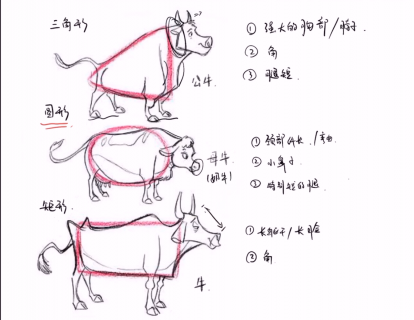 三角形
① 强大的胸部/脖子.
② 角
③ 腿短.
公牛
圆形
① 颈部伸长./弯曲
② 小鼻子
③ 特别短的腿.
母牛
(奶牛)
矩形.
① 长脖子/长脸
② 角
牛.